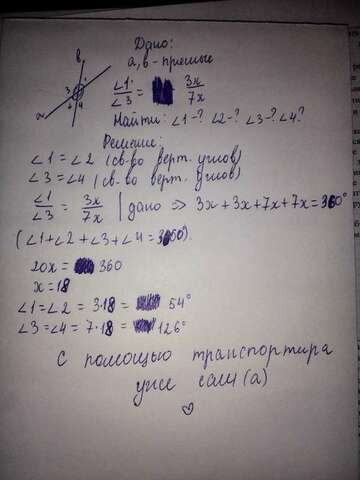 Дано:
a, b - прямые
b
3 1
2 4
a
∠1/∠3 = 3x/7x
Найти: ∠1-? ∠2-? ∠3-? ∠4?
Решение:
∠1 = ∠2 (св-во верт. углов)
∠3 = ∠4 (св-во верт. углов)
∠1/∠3 = 3x/7x | дано => 3x + 3x + 7x + 7x = 360°
(∠1 + ∠2 + ∠3 + ∠4 = 360°).
20x = 360
x = 18
∠1 = ∠2 = 3·18 = 54°
∠3 = ∠4 = 7·18 = 126°
С помощью транспортира
уже сам(а)
♡